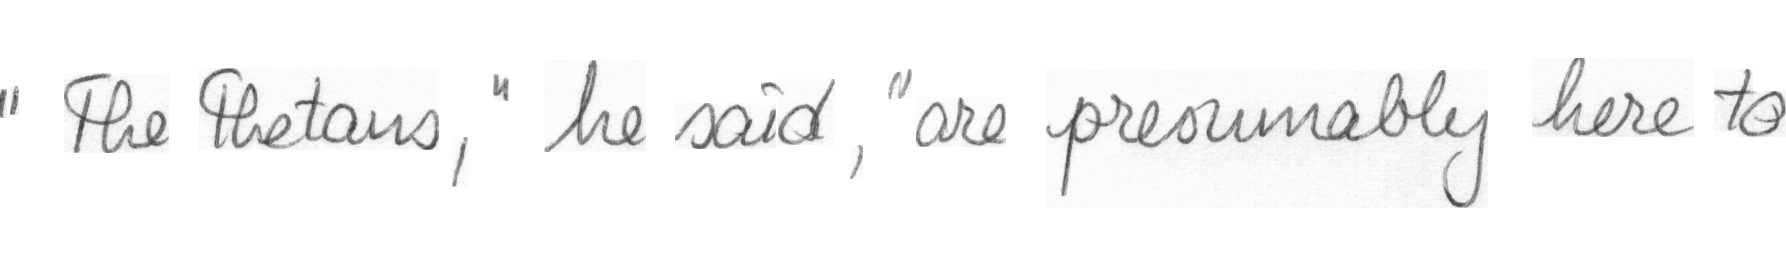 " The Thetans, " he said, " are presumably here to